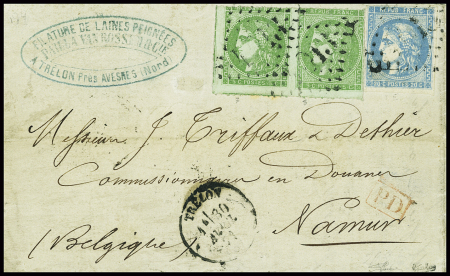 FILATURE DE LAINES PEIGNÉES
A TRÉLON Près AVESNES (Nord)
Messieurs J. Triffaux & Dethier
Commissionnaires en Douane
Namur
(Belgique)
TRÉLON
30
PD